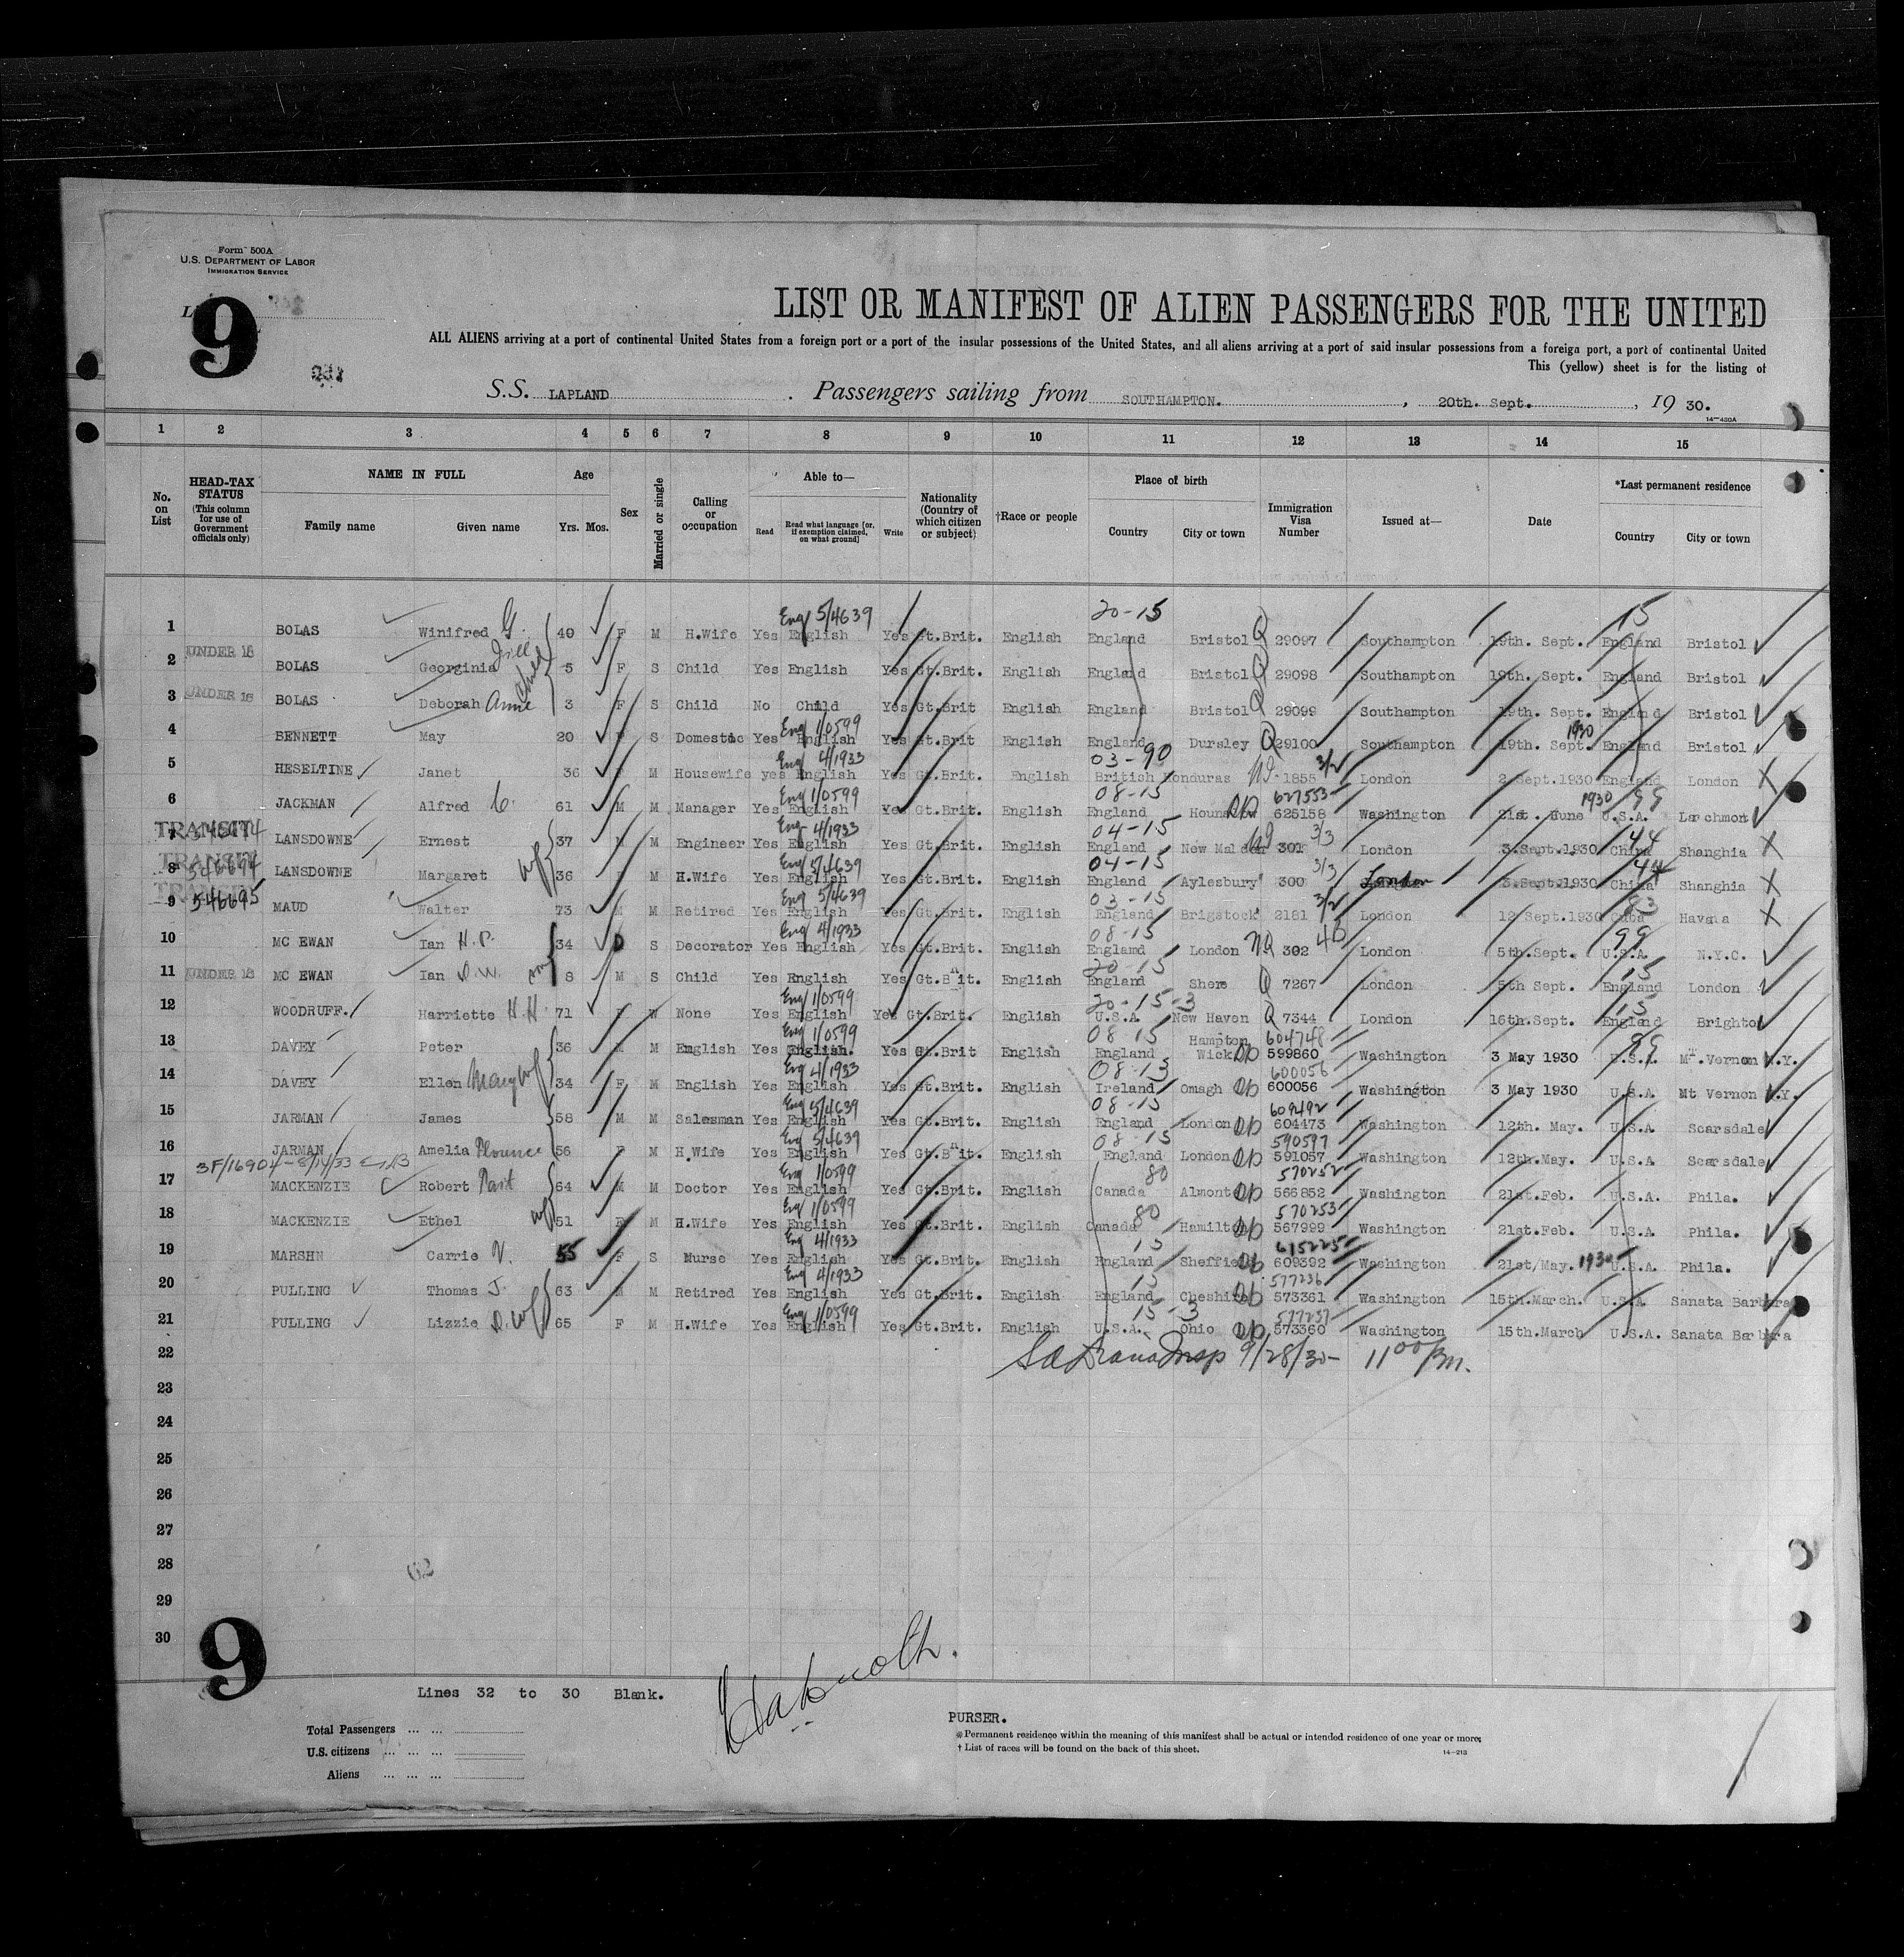 Form 500A
U.S. DEPARTMENT OF LABOR
IMMIGRATION SERVICE
9
LIST OR MANIFEST OF ALIEN PASSENGERS FOR THE UNITED
ALL ALIENS arriving at a port of continental United States from a foreign port or a port of the insular possessions of the United States, and all aliens arriving at a port of said insular possessions from a foreign port, a port of continental United
This (yellow) sheet is for the listing of
S.S. LAPLAND Passengers sailing from SOUTHAMPTON. , 20th. Sept. , 19 30.
14—430A
1 2 3 4 5 6 7 8 9 10 11 12 13 14 15
No. on List HEAD-TAX STATUS (This column for use of Government officials only) NAME IN FULL Family name Given name Age Yrs. Mos. Sex Married or single Calling or occupation Able to— Read Read what language [or, if exemption claimed, on what ground] Write Nationality (Country of which citizen or subject) †Race or people Place of birth Country City or town Immigration Visa Number Issued at— Date *Last permanent residence Country City or town
Eng 5/4639 20-15 15
1 BOLAS Winifred G. 40 F M H.Wife Yes English Yes Gt.Brit. English England Bristol Q 29097 Southampton 19th. Sept. England Bristol
2 UNDER 16 BOLAS Georginia Jill child 5 F S Child Yes English Yes Gt.Brit. English England Bristol Q 29098 Southampton 19th. Sept. England Bristol
3 UNDER 16 BOLAS Deborah Anne 3 F S Child No Child Yes Gt.Brit English England Bristol Q 29099 Southampton 19th. Sept. England Bristol
Eng 1/0599 1930
4 BENNETT May 20 F S Domestic Yes English Yes Gt.Brit English England Dursley Q 29100 Southampton 19th. Sept. England Bristol
Eng 4/1933 03-90 3/2
5 HESELTINE Janet 36 F M Housewife yes English Yes Gt.Brit. English British Honduras 1855 London 2 Sept.1930 England London X
Eng 1/0599 08-15 627553 1930 99
6 JACKMAN Alfred C. 61 M M Manager Yes English Yes Gt.Brit. English England Hounslow 625158 Washington 21st. June U.S.A. Larchmont
TRANSIT Eng 4/1933 04-15 3/3 44
7 LANSDOWNE Ernest 37 M M Engineer Yes English Yes Gt.Brit. English England New Malden 301 London 3.Sept.1930 China Shanghia X
TRANSIT 546694 Eng 5/4639 04-15 3/3 44
8 LANSDOWNE Margaret wf 36 F M H.Wife Yes English Yes Gt.Brit. English England Aylesbury 300 London 3.Sept.1930 China Shanghia X
TRANSIT 546695 Eng 5/4639 03-15 3/2 83
9 MAUD Walter 73 M M Retired Yes English Yes Gt.Brit. English England Brigstock 2181 London 12 Sept.1930 Cuba Havana X
Eng 4/1933 08-15 4B 99
10 MC EWAN Ian H.P. 34 S Decorator Yes English Yes Gt.Brit. English Englamd London NQ 302 London 5th.Sept. U.S.A. N.Y.C.
20-15 15
11 UNDER 16 MC EWAN Ian D.W. 8 M S Child Yes English Yes Gt.Bnit. English England Shere Q 7267 London 5th Sept. England London
Eng 1/0599 20-15-3 15
12 WOODRUFF. Harriette H.H. 71 F W None Yes English Yes Gt.Brit. English U.S.A. New Haven Q 7344 London 16th.Sept. England Brighto
Eng 1/0599 08 15 604748 99
13 DAVEY Peter 36 M M English Yes English. Yes Gt.Brit English England Hampton Wick 599860 Washington 3 May 1930 U.S.A Mt.Vernon N.Y.
Eng 4/1933 08-13 600056
14 DAVEY Ellen Mary wf 34 F M English Yes English Yes Gt.Brit. English Ireland Omagh 600056 Washington 3 May 1930 U.S.A Mt Vernon N.Y.
Eng 5/4639 08-15 609492
15 JARMAN James 58 M M Salesman Yes English Yes Gt.Brit. English England London 604473 Washington 12th. May. U.S.A Scarsdale
Eng 5/4639 08-15 590597
16 JARMAN Amelia Florence 56 F M H.Wife Yes English Yes Gt.Bnit. English England London 591057 Washington 12th.May. U.S.A Scarsdale
3F/16904-8/14/33 Eng 1/0599 80 570252
17 MACKENZIE Robert Tait 64 M M Doctor Yes English Yes Gt.Brit. English Canada Almont 566852 Washington 21st.Feb. U.S.A. Phila.
Eng 1/0599 80 570253
18 MACKENZIE Ethel wf 51 F M H.Wife Yes English Yes Gt.Brit. English Canada Hamilton 567999 Washington 21st.Feb. U.S.A Phila.
Eng 4/1933 15 615225
19 MARSHN Carrie V. 55 F S Nurse Yes English Yes Gt.Brit. English England Sheffield 609392 Washington 21st/May. 1930 U.S.A. Phila.
Eng 4/1933 15 577236
20 PULLING Thomas J. 63 M M Retired Yes English Yes Gt.Brit. English England Cheshire 573361 Washington 15th.March. U.S.A Sanata Barbara
Eng 1/0599 15-3 577237
21 PULLING Lizzie D. wf 65 F M H.Wife Yes English Yes Gt.Brit. English U.S.A. Ohio 573360 Washington 15th.March U.S.A. Sanata Barbara
22 Insp 9/28/30- 11 00 Pm.
23
24
25
26
27
28
29
30
62
9
Lines 32 to 30 Blank.
PURSER.
Total Passengers ... ...
U.S. citizens ... ... ...
Aliens ... ... ...
* Permanent residence within the meaning of this manifest shall be actual or intended residence of one year or more.
† List of races will be found on the back of this sheet.
14—213